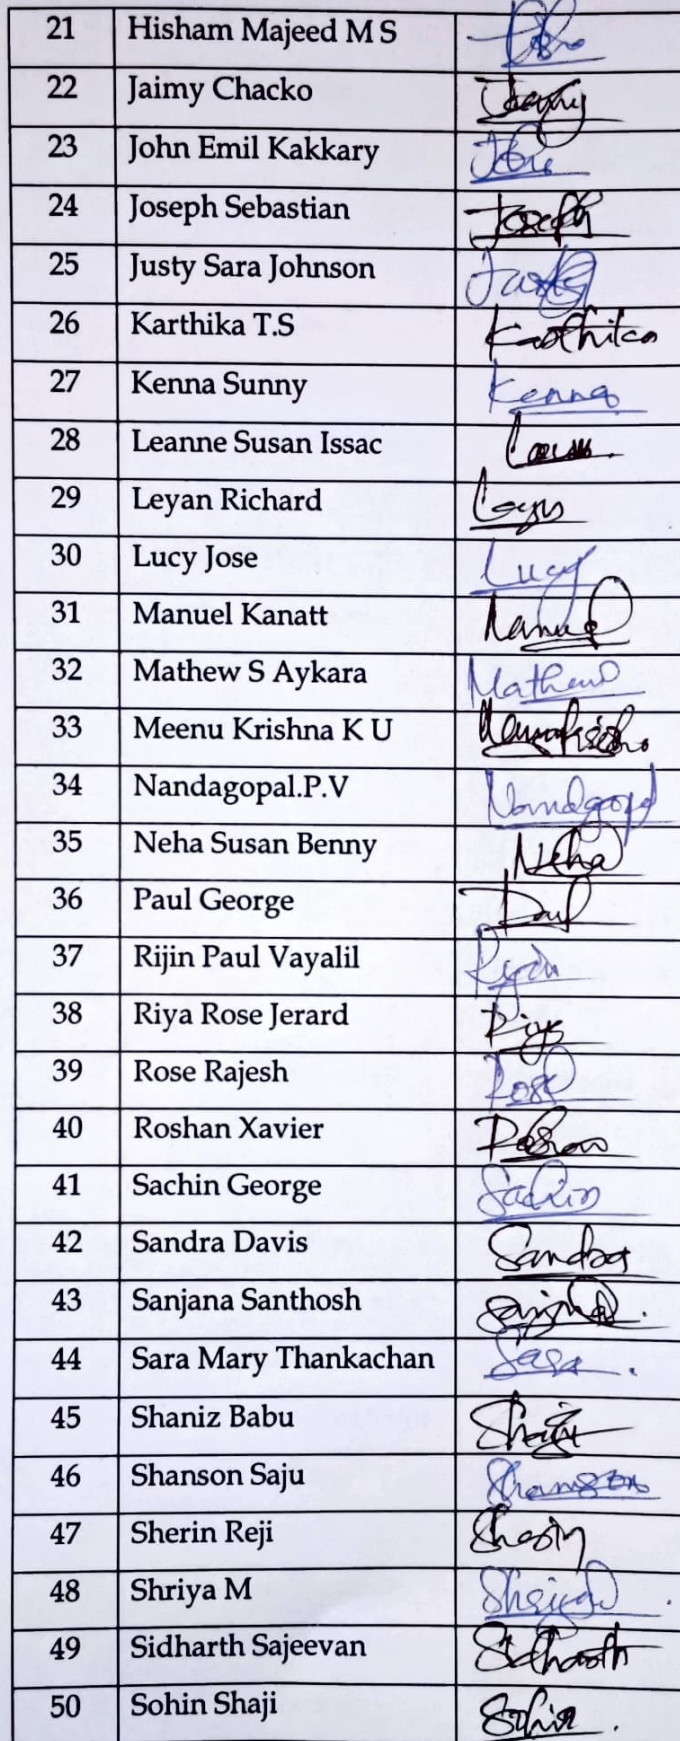 21 Hisham Majeed M S
22 Jaimy Chacko Jaimy
23 John Emil Kakkary John
24 Joseph Sebastian Joseph
25 Justy Sara Johnson Justy
26 Karthika T.S Karthika
27 Kenna Sunny Kenna
28 Leanne Susan Issac
29 Leyan Richard
30 Lucy Jose Lucy
31 Manuel Kanatt Manuel
32 Mathew S Aykara Mathew
33 Meenu Krishna K U
34 Nandagopal.P.V Nandagopal
35 Neha Susan Benny Neha
36 Paul George Paul
37 Rijin Paul Vayalil Rijin
38 Riya Rose Jerard Riya
39 Rose Rajesh Rose
40 Roshan Xavier Roshan
41 Sachin George Sachin
42 Sandra Davis Sandra
43 Sanjana Santhosh
44 Sara Mary Thankachan Sara
45 Shaniz Babu
46 Shanson Saju Shanson
47 Sherin Reji Sherin
48 Shriya M Shriya
49 Sidharth Sajeevan Sidharth
50 Sohin Shaji Sohin